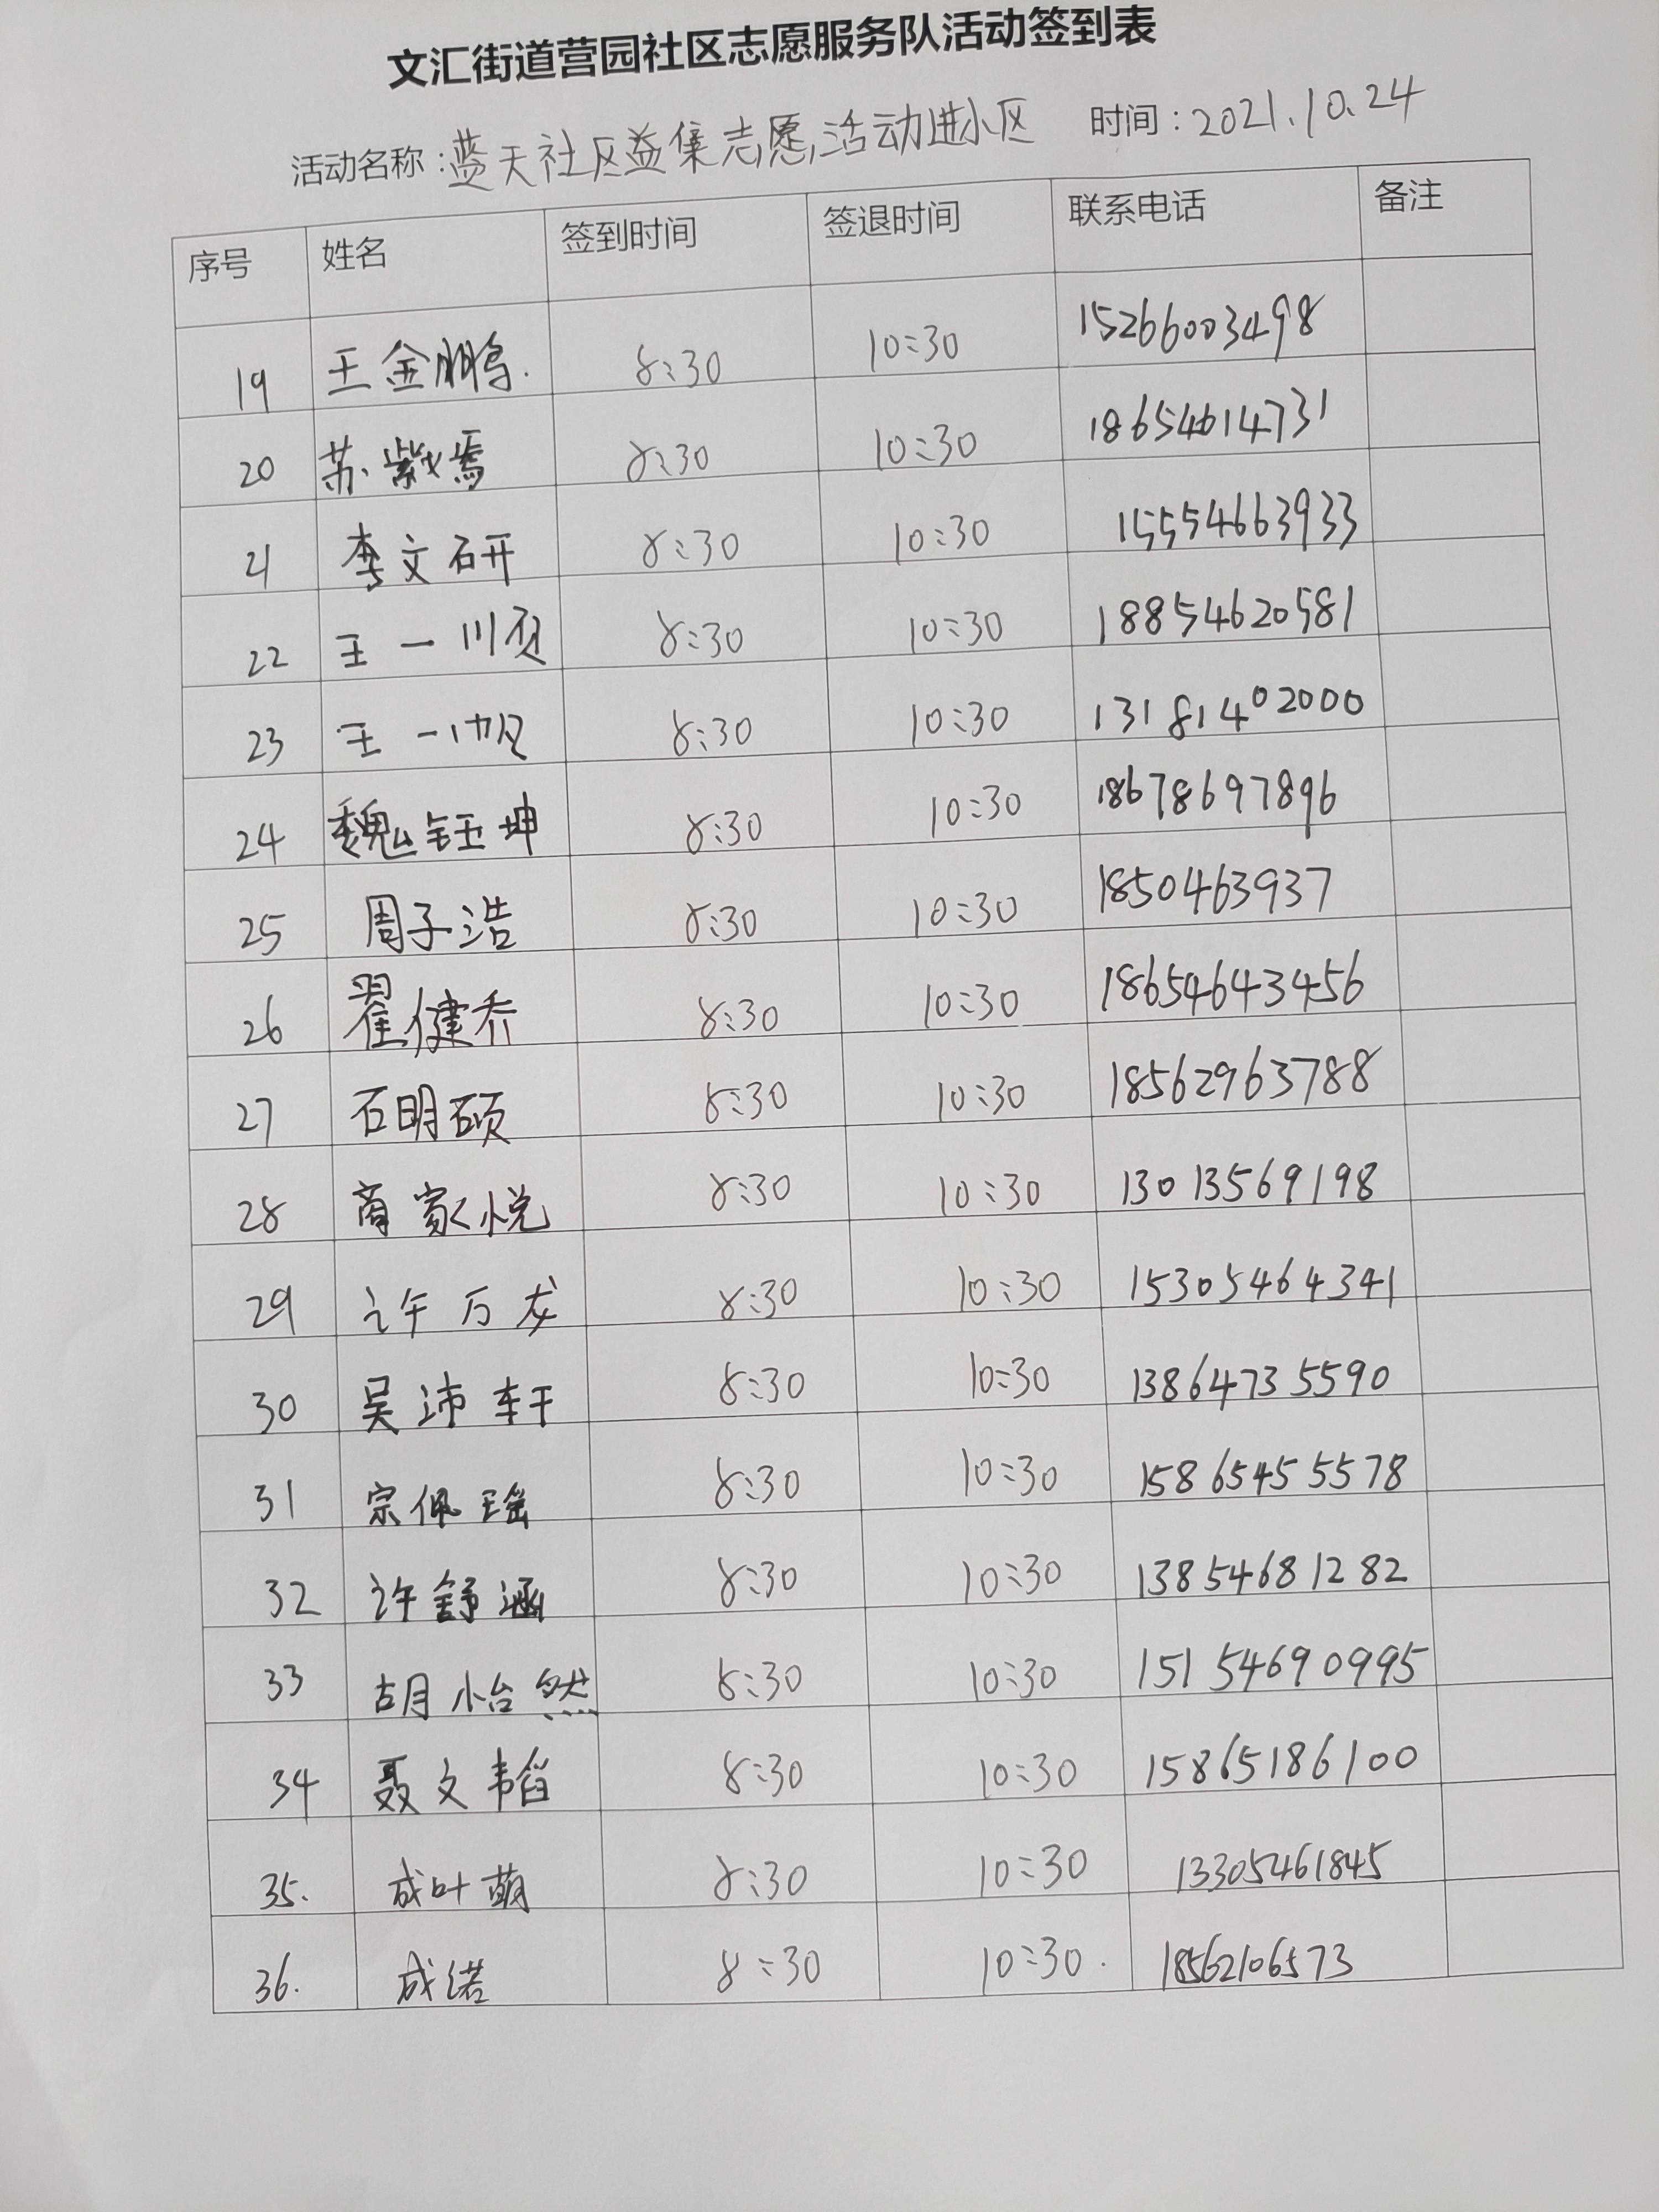 文汇街道营园社区志愿服务队活动签到表
活动名称:蓝天社区益集志愿活动进小区 时间:2021.10.24
序号 姓名 签到时间 签退时间 联系电话 备注
19 王金鹏. 8:30 10:30 15266003498
20 苏紫嫣 8:30 10:30 18654614731
21 李文研 8:30 10:30 15554663933
22 王一顺 8:30 10:30 18854620581
23 王一帆 8:30 10:30 13181402000
24 魏钰坤 8:30 10:30 18678697896
25 周子浩 8:30 10:30 1850463937
26 翟健乔 8:30 10:30 18654643456
27 石明硕 8:30 10:30 18562963788
28 商家悦 8:30 10:30 13013569198
29 许万龙 8:30 10:30 15305464341
30 吴沛轩 8:30 10:30 13864735590
31 宗佩瑶 8:30 10:30 15865455578
32 许舒涵 8:30 10:30 13854681282
33 胡怡然 8:30 10:30 15154690995
34 聂文韬 8:30 10:30 15865186100
35. 成叶萌 8:30 10:30 13305461845
36. 成诺 8:30 10:30. 18562106573